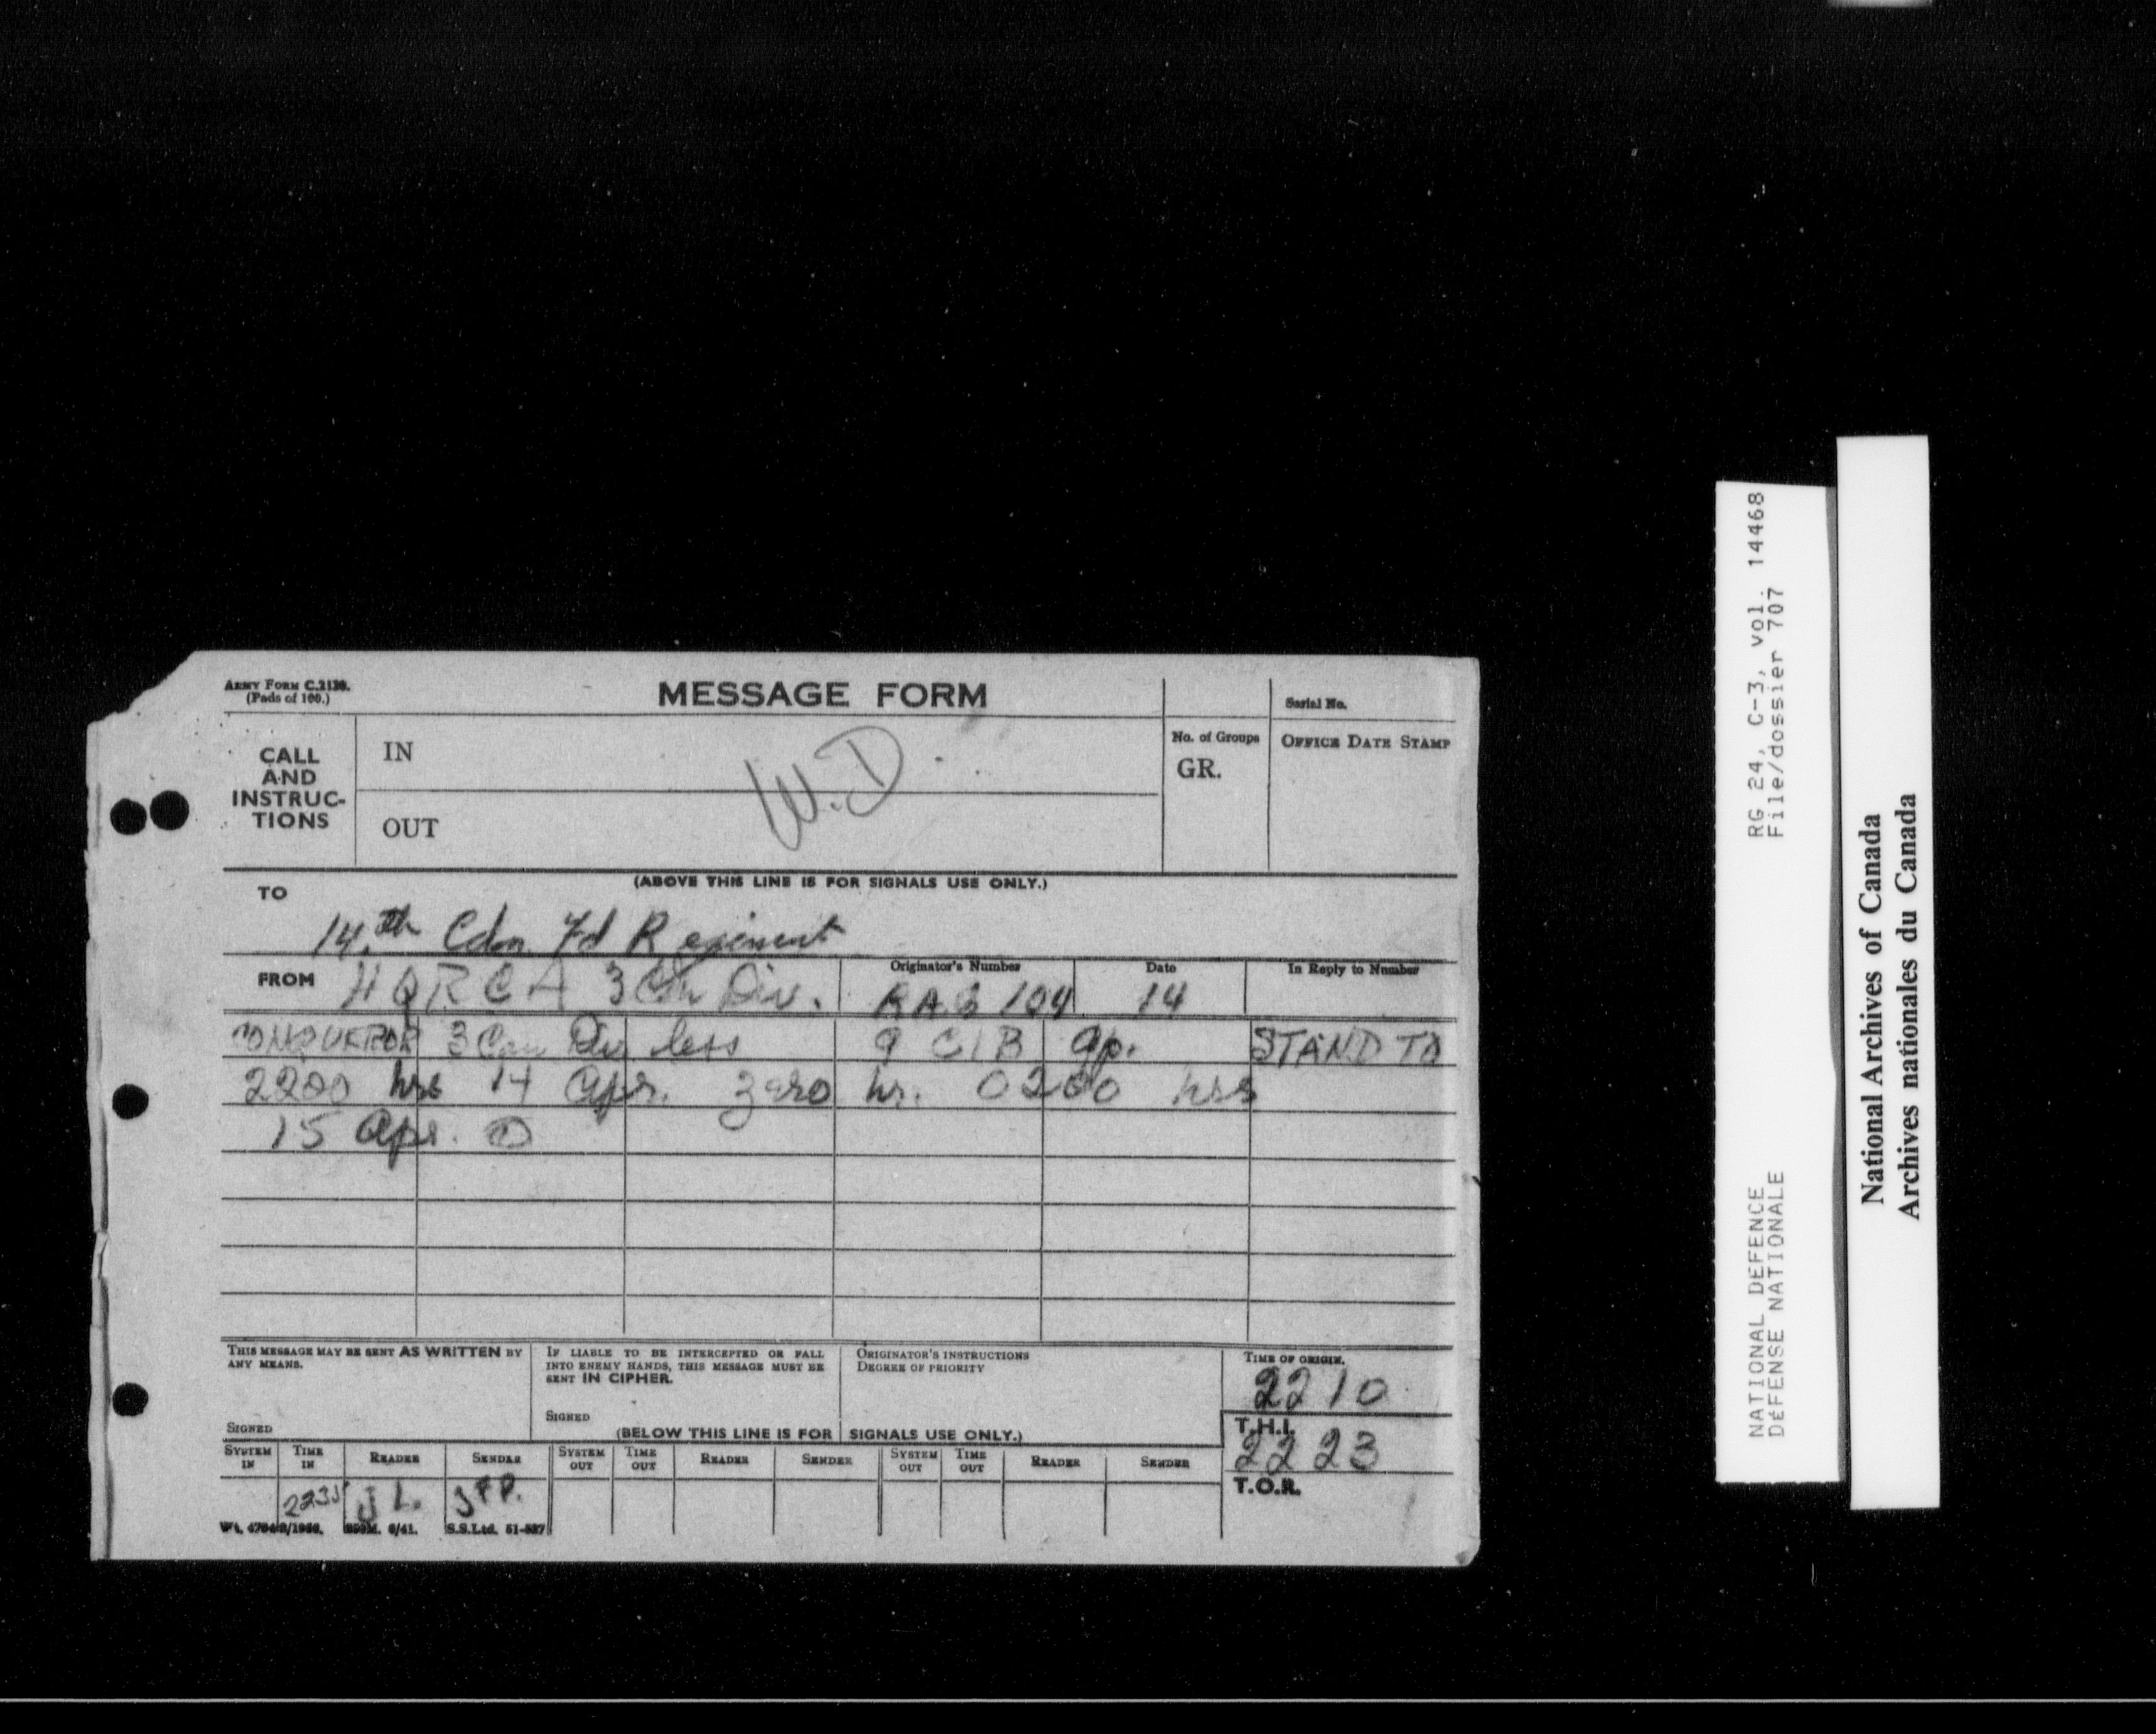 ARMY FORM C.2128.
(Pads of 100.)
MESSAGE FORM
Serial No.
CALL
AND
INSTRUC-
TIONS
IN
OUT
W.D.
No. of Groups
GR.
OFFICE DATE STAMP
(ABOVE THIS LINE IS FOR SIGNALS USE ONLY.)
TO
14th Cdn Fd Regiment
FROM HQRCA 3 Cdn Div.
Originator's Number
104
Date
14
In Reply to Number
CONQUEROR 3 Cdn Div less 9 CIB gp. STAND TO
2200 hrs 14 Apr. zero hr. 0200 hrs
15 Apr.
THIS MESSAGE MAY BE SENT AS WRITTEN BY
ANY MEANS.
SIGNED
IF LIABLE TO BE INTERCEPTED OR FALL
INTO ENEMY HANDS, THIS MESSAGE MUST BE
SENT IN CIPHER.
SIGNED
ORIGINATOR'S INSTRUCTIONS
DEGREE OF PRIORITY
TIME OF ORIGIN.
2210
T.H.I.
2223
T.O.R.
(BELOW THIS LINE IS FOR SIGNALS USE ONLY.)
SYSTEM IN TIME IN READER SENDER SYSTEM OUT TIME OUT READER SENDER SYSTEM OUT TIME OUT READER SENDER
2235 JL. JFP.
6/41. S.S.Ltd. 51-
RG 24, C-3, vol. 14468
File/dossier 707
NATIONAL DEFENCE
DÉFENSE NATIONALE
National Archives of Canada
Archives nationales du Canada